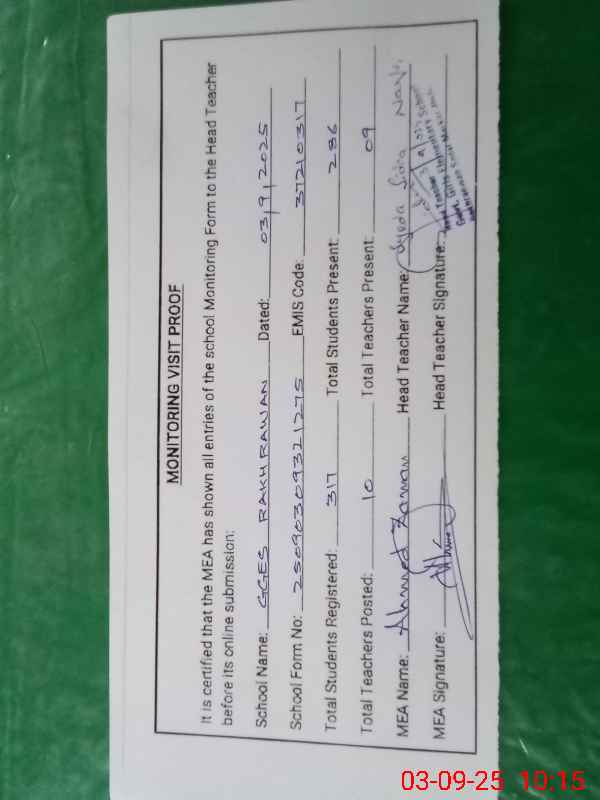 MONITORING VISIT PROOF
It is certified that the MEA has shown all entries of the school Monitoring Form to the Head Teacher
before its online submission:
School Name: GGES RAKH RAWAN Dated: 03/9/2025
School Form No: 25090309321275 EMIS Code: 37210317
Total Students Registered: 317 Total Students Present: 286
Total Teachers Posted: 10 Total Teachers Present: 09
MEA Name: Ahmed Zaman Head Teacher Name: Syeda Sidra
MEA Signature: Head Teacher Signature:
Head Teacher
03-09-25 10:15